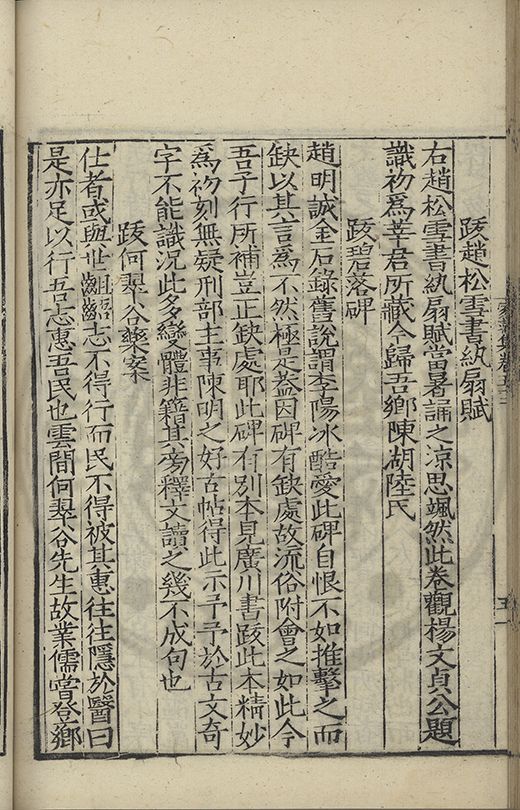 跋趙松雪書紈扇賦
右趙松雪書紈扇賦當暑誦之涼思颯然此卷觀楊文貞公題
識初爲莘君所藏今歸吾鄉陳胡陸氏
跋碧落碑
趙明誠金石錄舊說謂李陽冰酷愛此碑自恨不如推擊之而
缺以其言爲不然極是葢因碑有缺處故流俗附會之如此今
吾子行所補豈正缺處耶此碑有別本見廣川書跋此本精妙
爲初刻無疑刑部主事陳明之好古帖得此示予予於古文奇
字不能識況此多變體非籍其旁釋文讀之幾不成句也
跋何翠谷藥案
仕者或與世齟齬志不得行而民不得被其惠往往隱於醫曰
是亦足以行吾志惠吾民也雲間何翠谷先生故業儒嘗登鄉